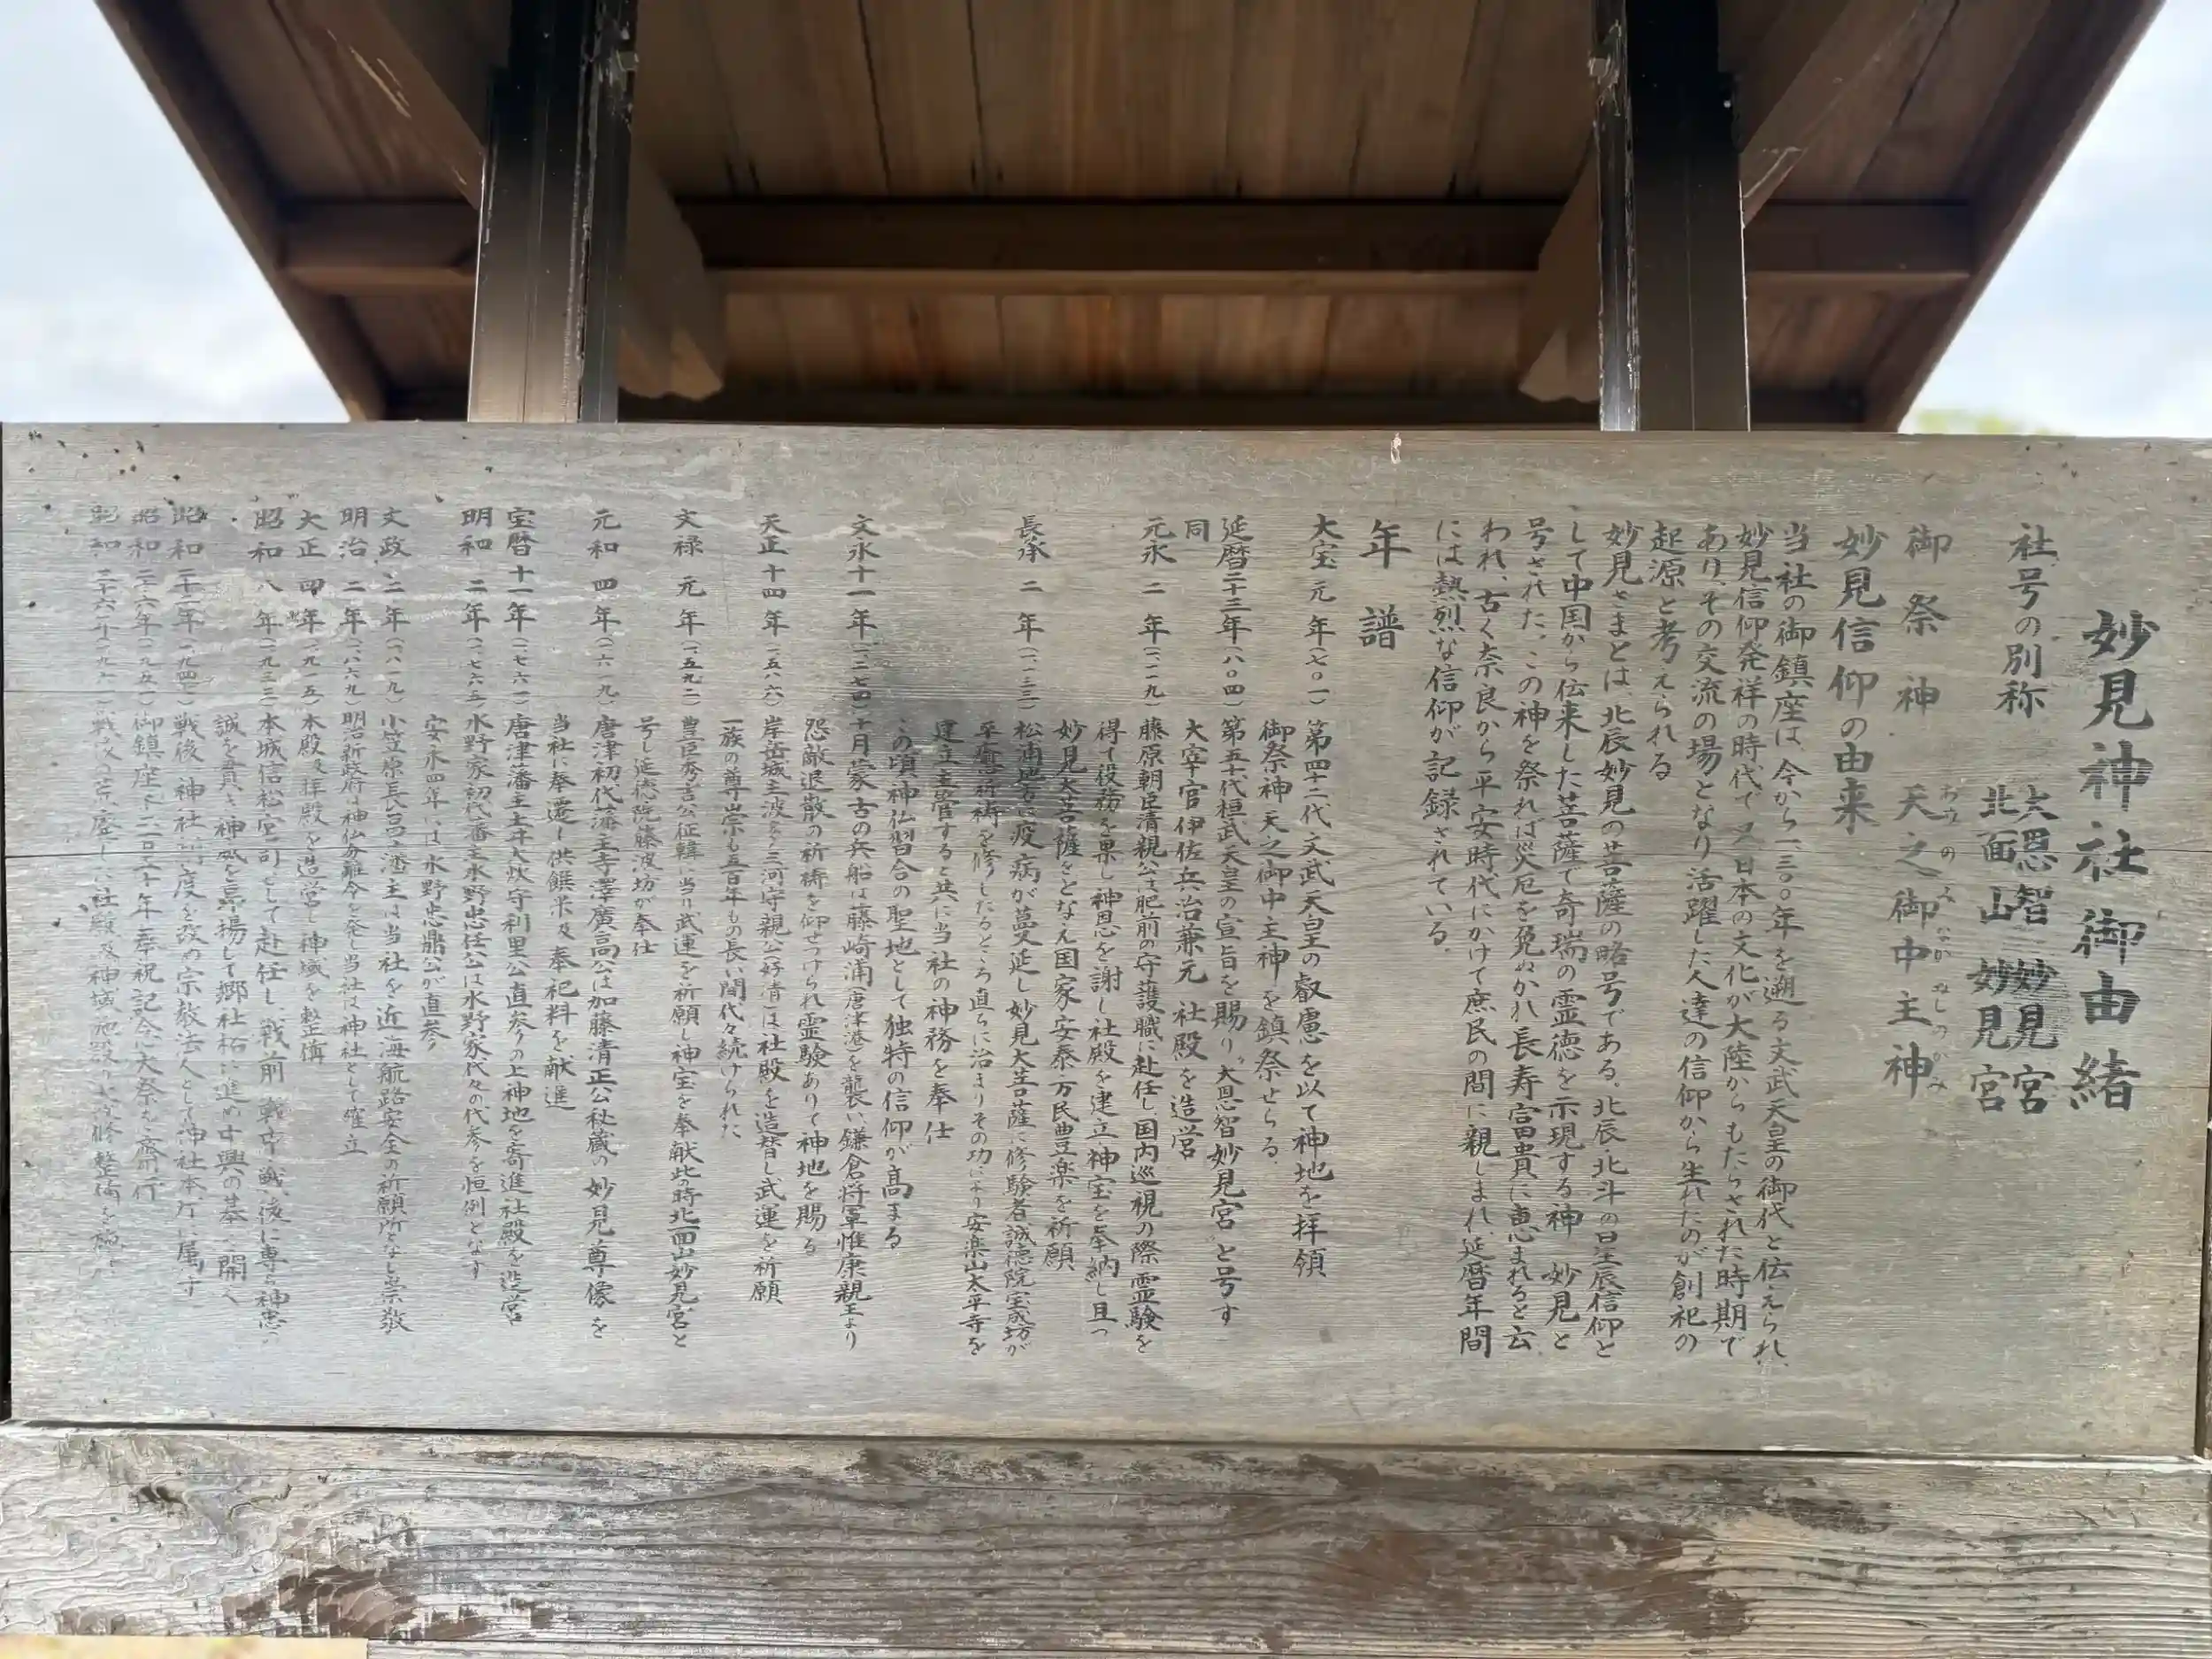 妙見神社御由緒
社号の別称
大恩智妙見宮
北面山妙見宮
御祭神 天之御中主神
あめのみなかぬしのかみ
妙見信仰の由来
当社の御鎮座は、今から一、三〇〇年を遡る文武天皇の御代と伝えられ、
妙見信仰発祥の時代で又日本の文化が大陸からもたらされた時期で
あり、その交流の場となり活躍した人達の信仰から生れたのが創祀の
起源と考えられる
妙見さまとは、北辰妙見の菩薩の略号である。北辰・北斗の星辰信仰と
して中国から伝来した菩薩で奇瑞の霊徳を示現する神 妙見と
号された。この神を祭れば災厄を免ぬかれ長寿富貴に恵まれると云
われ、古く奈良から平安時代にかけて庶民の間に親しまれ、延暦年間
には熱烈な信仰が記録されている。
年譜
大宝元年(七〇一)第四十二代文武天皇の叡慮を以て神地を拝領
御祭神天之御中主神を鎮祭せらる。
延暦二十三年(八〇四)第五十代桓武天皇の宣旨を賜り大恩智妙見宮と号す
同 大宰官伊佐兵治兼元 社殿を造営
元永二年(一一一九)藤原朝臣清親公は肥前の守護職に赴任し国内巡視の際霊験を
得て役務を果し神恩を謝し社殿を建立神宝を奉納し且つ
妙見大菩薩をとなえ国家安泰万民豊楽を祈願
長承二年(一一三三)松浦地方に疫病が蔓延し妙見大菩薩に修験者誠徳院宝成坊が
平癒祈祷を修したるところ直らに治まりその功により安楽山太平寺を
建立主管すると共に当社の神務を奉仕
この頃神仏習合の聖地として独特の信仰が高まる
文永十一年(一二七四)十月蒙古の兵船は藤崎浦(唐津港)を襲い鎌倉将軍惟康親王より
怨敵退散の祈祷を仰せつけられ霊験ありて神地を賜る
天正十四年(一五八六)岸岳城主波多三河守親公(好清)は社殿を造替し武運を祈願
一族の尊崇も五百年もの長い間代々続けられた
文禄元年(一五九二)豊臣秀吉公征韓に当り武運を祈願し神宝を奉献此の時北面山妙見宮と
号し延徳院藤波坊が奉仕
元和四年(一六一九)唐津初代藩主寺澤廣高公は加藤清正公秘蔵の妙見尊像を
当社に奉遷し供饌米及奉祀料を献進
宝暦十一年(一七六一)唐津藩主土井大炊守利里公直参の上神地を寄進社殿を造営
明和二年(一七六五)水野家初代藩主水野忠任公は水野家代々の代参を恒例となす
安永四年には水野忠鼎公が直参
文政二年(一八一九)小笠原長昌藩主は当社を近海航路安全の祈願所となし崇敬
明治二年(一八六九)明治新政府は神仏分離令を発し当社は神社として確立
大正四年(一九一五)本殿及拝殿を造営し神域を整備
昭和八年(一九三三)本城信松宮司として赴任し、戦前 戦中 戦後に専ら神忠の
誠を貫き神威を昂揚して郷社格に進め中興の基を開く
昭和二十二年(一九四七)戦後 神社制度を改め宗教法人として神社本庁に属す
昭和二十六年(一九五一)御鎮座千二百五十年奉祝記念大祭を斎行
昭和三十六年(一九六一)